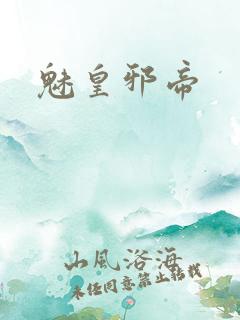 魅皇邪帝
山風浴海
未经同意禁止转载